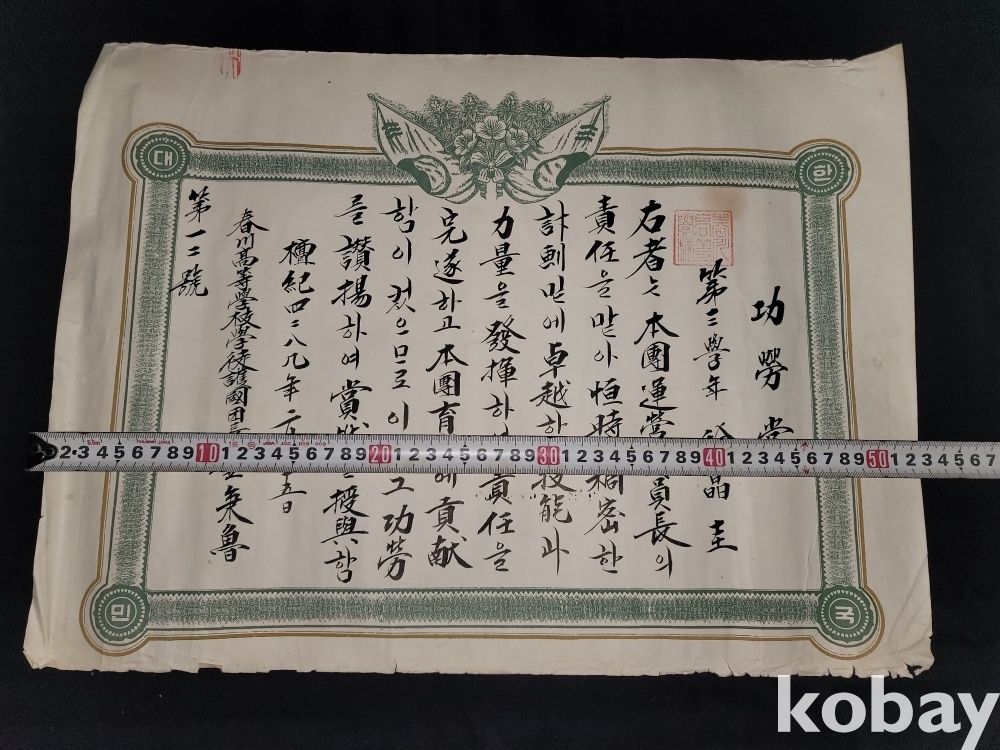 대
한
功勞
第三學年 晶圭
右者는 本團運營 員長의
責任을 맡아 恒時 稠密한
計劃밑에 卓越한 技能과
力量을 發揮하 責任을
完遂하고 本團育 에 貢献
함이 컸으므로 이 그 功勞
를 讃揚하여 賞 授與함
檀紀四二八九年 二 五日
春川高等學校學徒護國団 英魯
第一二號
2 3 4 5 6 7 8 9 10 1 2 3 4 5 6 7 8 9 20 1 2 3 4 5 6 7 8 9 30 1 2 3 4 5 6 7 8 9 40 1 2 3 4 5 6 7 8 9 50 1 2 3 4 5 6 7
민
국
kobay